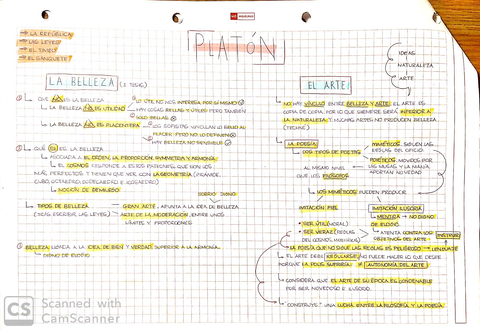 → LA REPÚBLICA
→ LAS LEYES
→ EL TIMEO
→ EL BANQUETE
PLATÓN
IDEAS
NATURALEZA
ARTE
LA BELLEZA
EL ARTE
QUÉ NO ES LA BELLEZA
LA BELLEZA NO ES UTILIDAD
LO ÚTIL NO NOS INTERESA POR SÍ MISMO
HAY COSAS BELLAS Y ÚTILES PERO TAMBIÉN
SOLO BELLAS
LA BELLEZA NO ES PLACENTERA
LOS SOFISTAS VINCULAN LO BELLO AL
PLACER PERO NO LO DEFINIERON
HAY BELLEZA NO SENSIBLE
QUÉ SÍ ES LA BELLEZA
ASOCIADA A EL ORDEN, LA PROPORCIÓN, SIMETRÍA Y ARMONÍA
EL COSMOS RESPONDE A ESTOS ESQUEMAS, QUE SON LOS
MÁS PERFECTOS Y TIENEN QUE VER CON LA GEOMETRÍA
NOCIÓN DE DEMIURGO
TIPOS DE BELLEZA
GRAN ARTE, APUNTA A LA IDEA DE BELLEZA
ARTE DE LA MODERACIÓN, ENTRE UNOS
LÍMITES Y PROPORCIONES
BELLEZA LIGADA A LA IDEA DE BIEN Y VERDAD, SUPERIOR A LA ARMONÍA.
DIGNO DE ELOGIO
NO HAY VÍNCULO ENTRE BELLEZA Y ARTE. EL ARTE ES
COPIA DE COPIA, POR LO QUE SIEMPRE SERÁ INFERIOR A
LA NATURALEZA Y MUCHAS ARTES NO PRODUCEN BELLEZA
LA POESÍA
DOS TIPOS DE POETAS
MIMÉTICOS, SIGUEN LAS
REGLAS DEL OFICIO
POIÉTICOS, MOVIDOS POR
LAS MUSAS Y LA MANÍA
APORTAN NOVEDAD
AL MISMO NIVEL
QUE LOS FILÓSOFOS
LOS MIMÉTICOS PUEDEN PRODUCIR
IMITACIÓN FIEL
IMITACIÓN ILUSORIA
MENTIRA → NO DIGNO
DE ELOGIO
SER ÚTIL (MORAL)
SER VERAZ (REGLAS
ATENTA CONTRA LOS
OBJETIVOS DEL ARTE
LA POESÍA QUE NO SIGUE LAS REGLAS ES PELIGROSO
EL ARTE DEBE REGULARSE, NO PUEDE HACER LO QUE DESEE
PORQUE LA POLIS SUFRIRÍA ≠ AUTONOMÍA DEL ARTE
CONSIDERA QUE EL ARTE DE SU ÉPOCA ES CONDENABLE
POR SER NOVEDOSO E ILUSORIO.
CONSTRUYE UNA LUCHA ENTRE LA FILOSOFÍA Y LA POESÍA
CS Scanned with
CamScanner